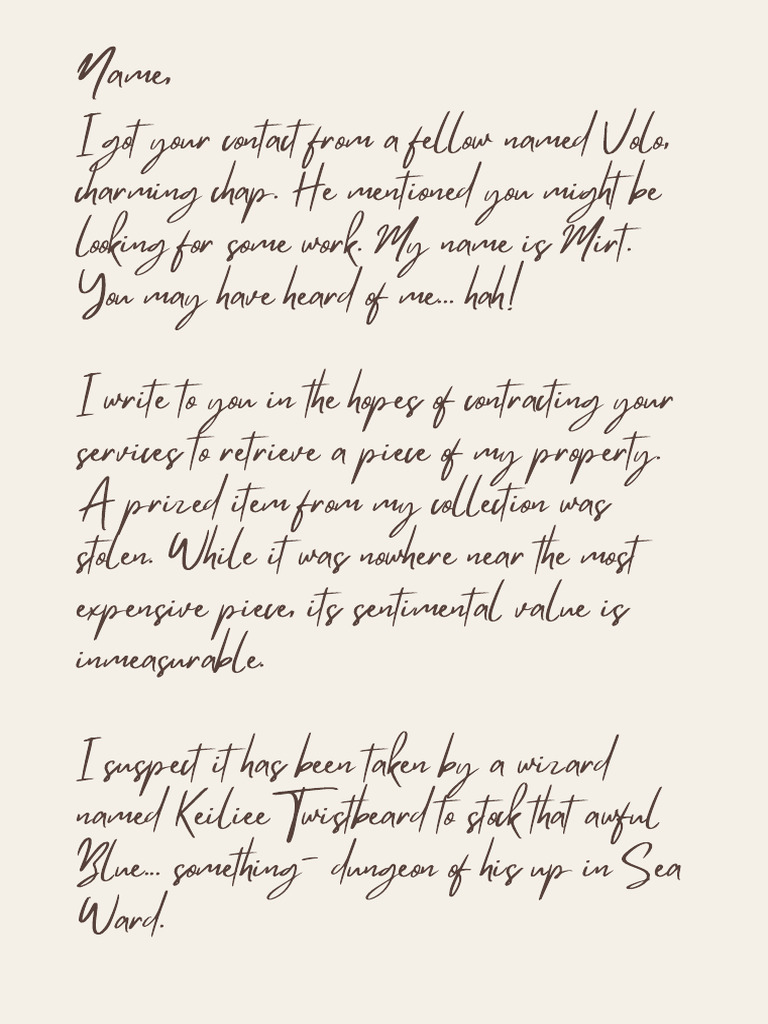 Name,
I got your contact from a fellow named Volo,
charming chap. He mentioned you might be
looking for some work. My name is Mirt.
You may have heard of me... hah!
I write to you in the hopes of contracting your
services to retrieve a piece of my property.
A prized item from my collection was
stolen. While it was nowhere near the most
expensive piece, its sentimental value is
inmeasurable.
I suspect it has been taken by a wizard
named Keiliee Twistbeard to stock that awful
Blue... something- dungeon of his up in Sea
Ward.